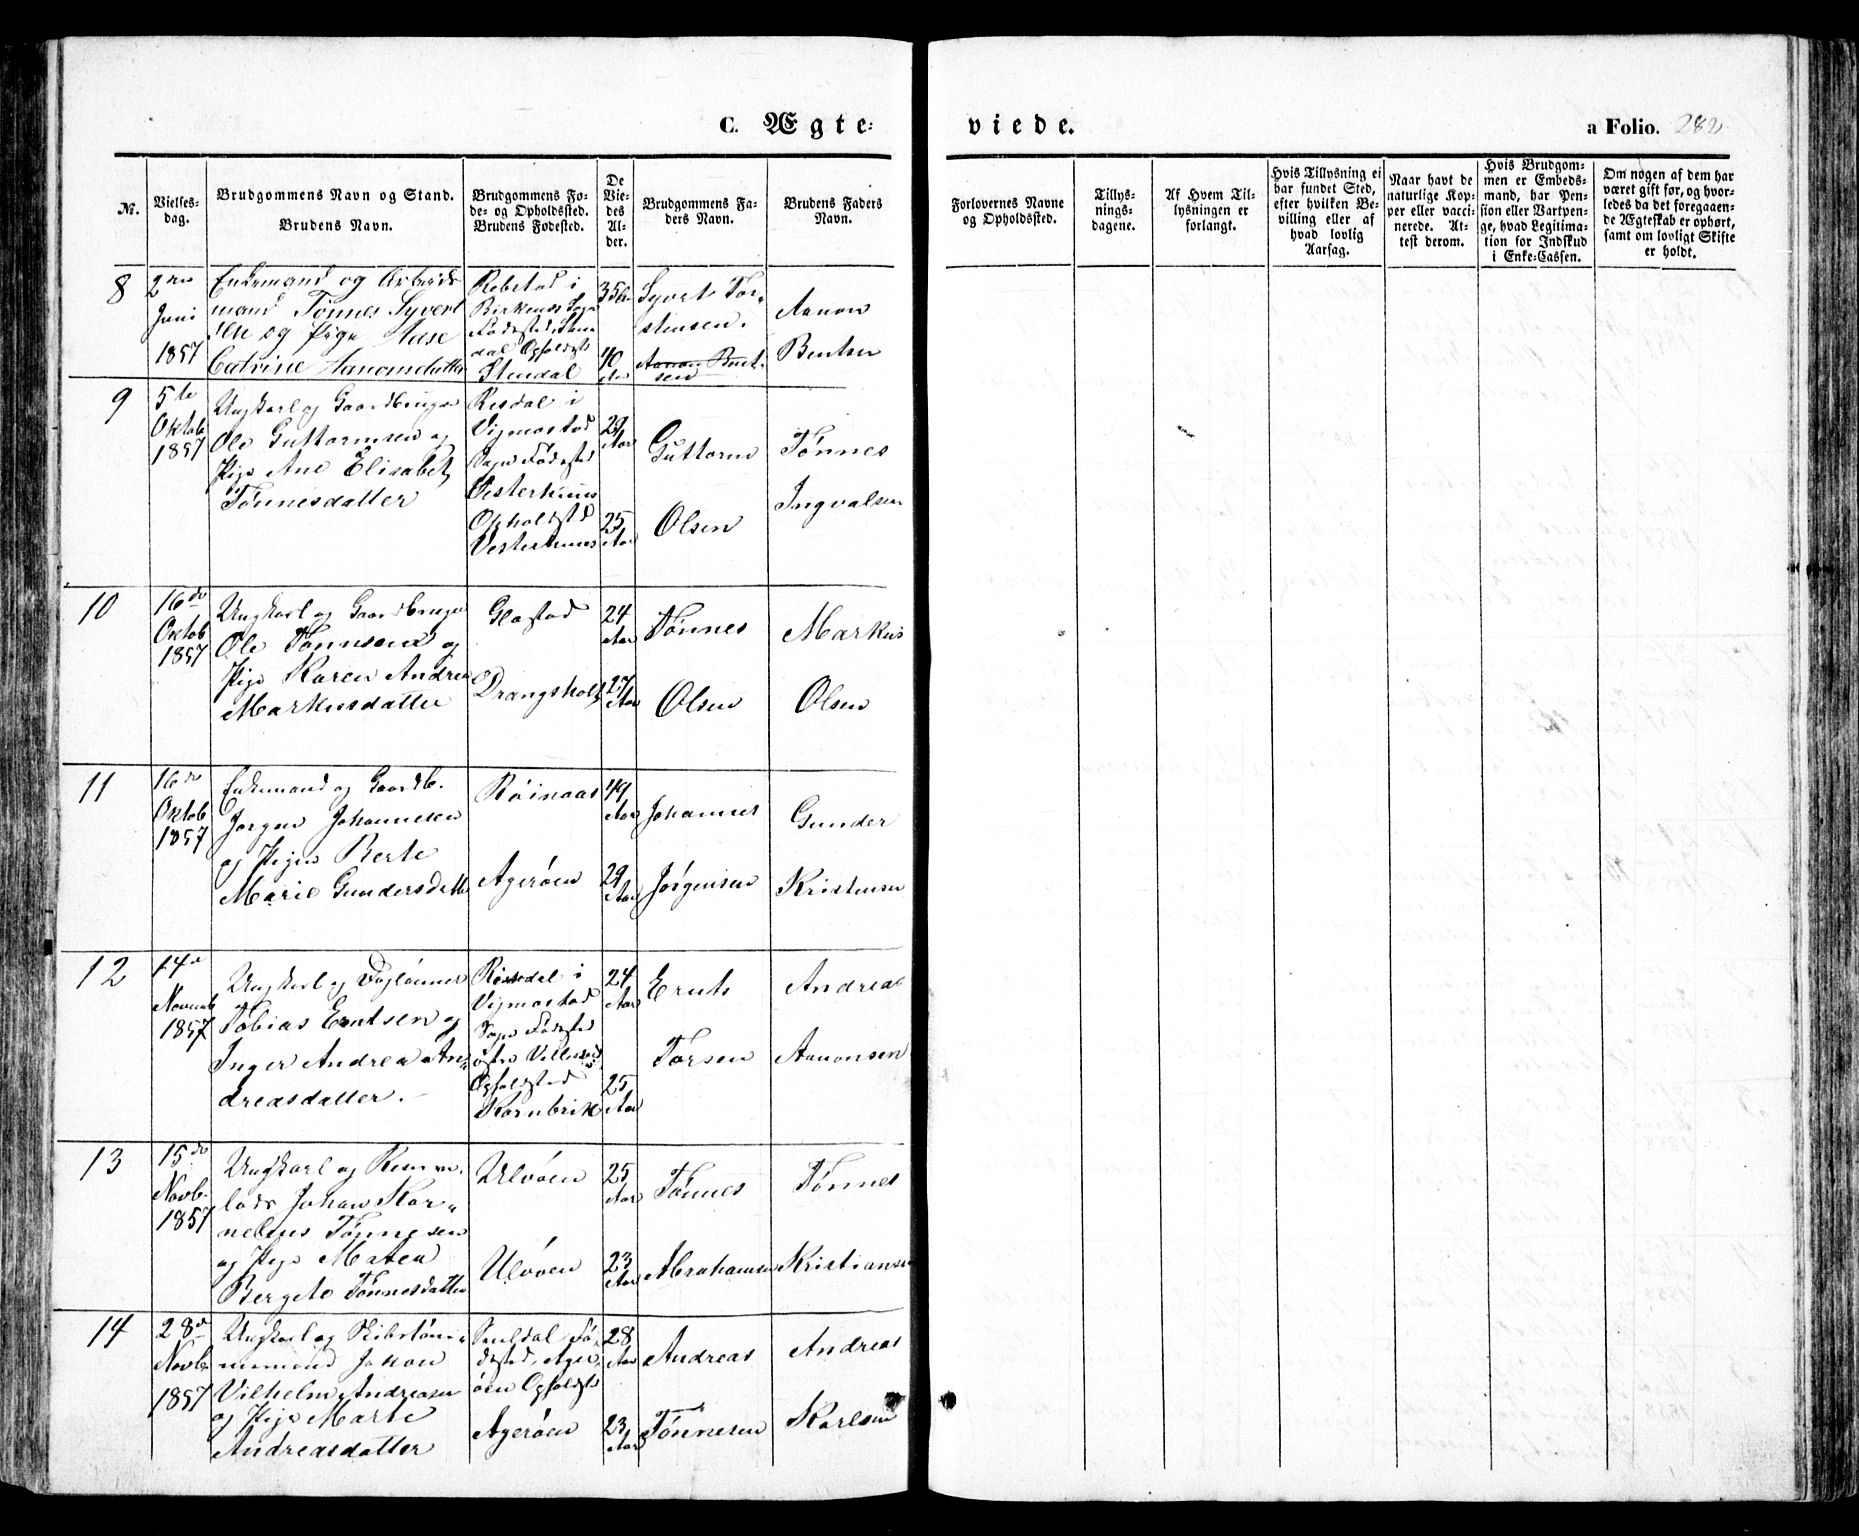 C. Ægte=
viede.
a Folio. 282.
No.
Vielses-
dag.
Brudgommens Navn og Stand.
Brudens Navn.
Brudgommens Fø-
de- og Opholdssted.
Brudens Fødested.
De
Vie-
des
Al-
der.
Brudgommens Fa-
ders Navn.
Brudens Faders
Navn.
Forlovernes Navne
og Opholdssted.
Tillys-
nings-
dagene.
Af Hvem Til-
lysningen er
forlangt.
Hvis Tillysning ei
har fundet Sted,
efter hvilken Be-
villing eller af
hvad lovlig
Aarsag.
Naar havt de
naturlige Kop-
per eller vacci-
nerede. At-
test derom.
Hvis Brudgom-
men er Embeds-
mand, har Pen-
sion eller Vartpen-
ge, hvad Legitima-
tion for Indskud
i Enke-Cassen.
Om nogen af dem har
været gift før, og hvor-
ledes da det foregaaen-
de Ægteskab er ophørt,
samt om lovligt Skifte
er holdt.
8
2den
Juni
1857
Enkemand og Arbeids
mand Tønnes Syvert
sen og Pige
Catrine Aanonsdatter
Rebstad i
Birkenes Sogn
Fødested, Sten
dal Opholdsts
Stendal
35
40
Syvert Tor-
stensen.
Aanon Bent-
sen
Aanon
Bentsen
9
5te
Oktob
1857
Ungkarl og Gaardbruger
Ole Guttormsen og
Pige Ane Elisabet
Tønnesdatter
Risdal i
Vigmostad
Sogn Fødested
Vesterhuus
Opholdsted
Vesterhuus
29
Aar
25
Aar
Guttorm
Olsen
Tønnes
Ingvalsen
10
16de
Oktob
1857
Ungkarl og Gaardbruger
Ole Tønnsen og
Pige Karen Andrea
Markusdatter
Glastad
Drangsholt
24
Aar
27
Aar
Tønnes
Olsen
Markus
Olsen
11
16de
Oktob
1857
Enkemand og Gaardb.
Jørgen Johannesen
og Pigen Berte
Marie Gundersdatter
Røinaas
Agerøen
49
Aar
29
Aar
Johannes
Jørgensen
Gunder
Kristensen
12
14de
Novemb
1857
Ungkarl og Daglønner
Tobias Erntsen og
Inger Andrea An-
dreasdatter.
Rossedal i
Vigmostad
Sogn Fødested
østre Vallesverd
Opholdsted
Kornbrik
24
Aar
25
Aar
Ernts
Torsen
Andreas
Aanonsen
13
15de
Novb.
1857
Ungkarl og
Johan Kor-
nelius Tønnesen
og Pige Maren
Bergete Tønnesdatter
Ulvøen
Ulvøen
25
Aar
23
Aar
Tønnes
Abrahamsen
Tønnes
Kristiansen
14
28de
Novb.
1857
Ungkarl og Skibstøm-
mermand Johan
Vilhelm Andreasen
og Pige Marte
Andreasdatter
Sauldal Fø-
dested, Ager
øen Opholdsts
Agerøen
28
Aar
23
Aar
Andreas
Tønnesen
Andreas
Karlsen